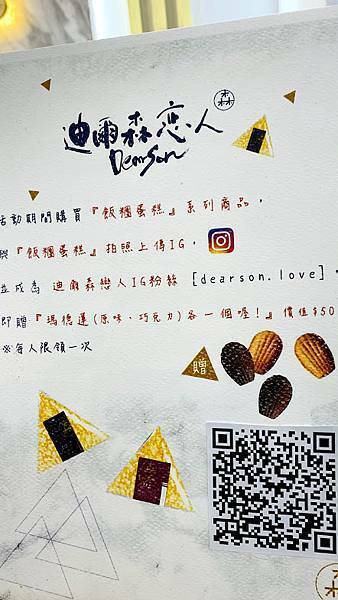 迪爾森戀人
森
Dearson
活動期間購買『飯糰蛋糕』系列商品，
與『飯糰蛋糕』拍照上傳IG，
並成為 迪爾森戀人IG粉絲 [dearson.love]，
即贈『瑪德蓮(原味、巧克力)各一個喔！』價值$50
※每人限領一次
贈
森